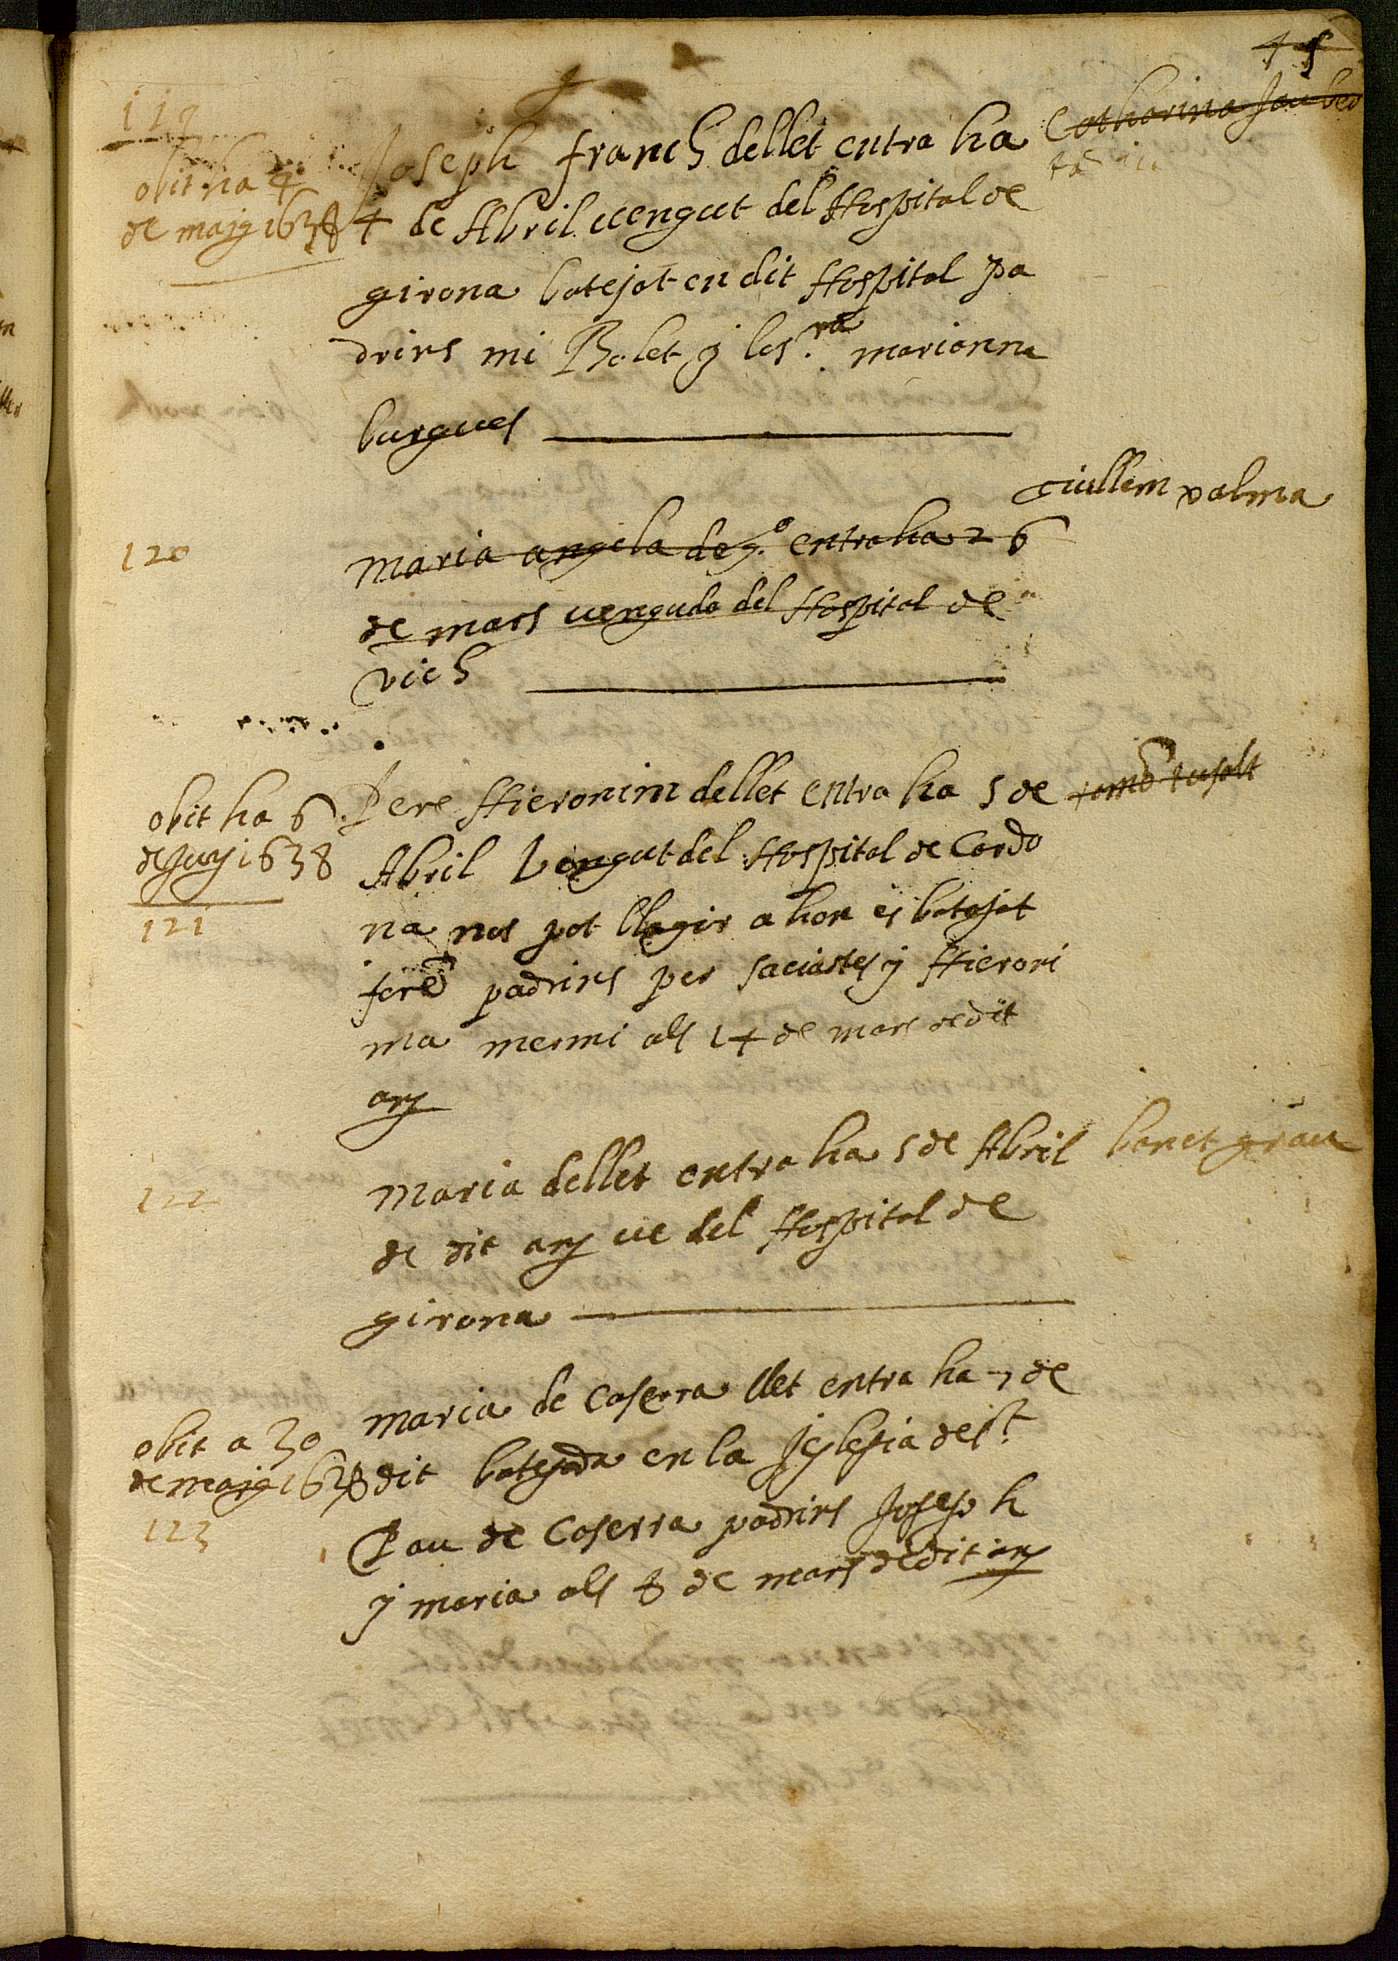 45
119
obit ha 4
de maig 1638
Joseph franch dellet entra ha
4 de Abril vengut del Hospital de
girona batejat en dit Hospital pa
drins mi Bolet y la s.ra marianna
burgues
Catharina Jaube
guillem palma
120
maria angela de g.o entra ha 26
de mars venguda del Hospital de
vich
obit ha 6
de juny 1638
121
Pere Hieronim dellet entra ha 5 de
Abril vengut del Hospital de Cardo
na nos pot llegir a hon es batejat
foren padrins per saciastes y Hieroni
ma mermi als 14 de mars de dit
any
122
maria dellet entra ha 5 de Abril
de dit any ve del Hospital de
girona
benet grau
obit a 30
de maig 1638
123
maria de Caserra llet entra ha 7 de
dit batejada en la Jglesia de s.t
Pau de Caserra padrins Joseph
y maria als 8 de mars de dit any